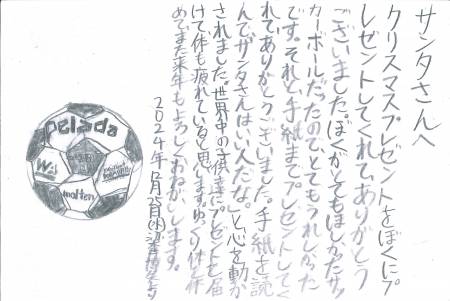 サンタさんへ
クリスマスプレゼントをぼくにプ
レゼントしてくれてありがとう
ございました。ぼくがとてもほしかったサッ
カーボールだったのでとてもうれしかった
です。それと手紙までプレゼントしてく
れてありがとうございました。手紙を読
んで、サンタさんはいい人だな。と心を動か
されました。世界中の子供達にプレゼントを届
けて体も疲れていると思います。ゆっくり体を休
めてまた来年もよろしくおねがいします。
2024年12月25日(水)
Pelada
molten